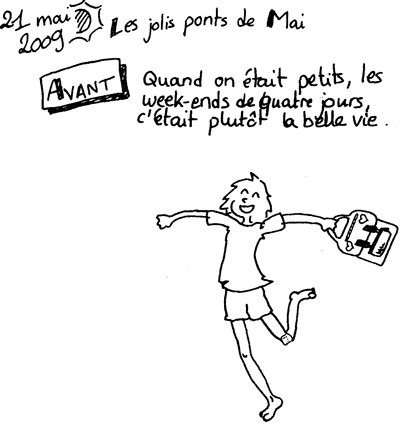 21 mai 2009 Les jolis ponts de Mai
AVANT
Quand on était petits, les
week-ends de quatre jours,
c'était plutôt la belle vie.